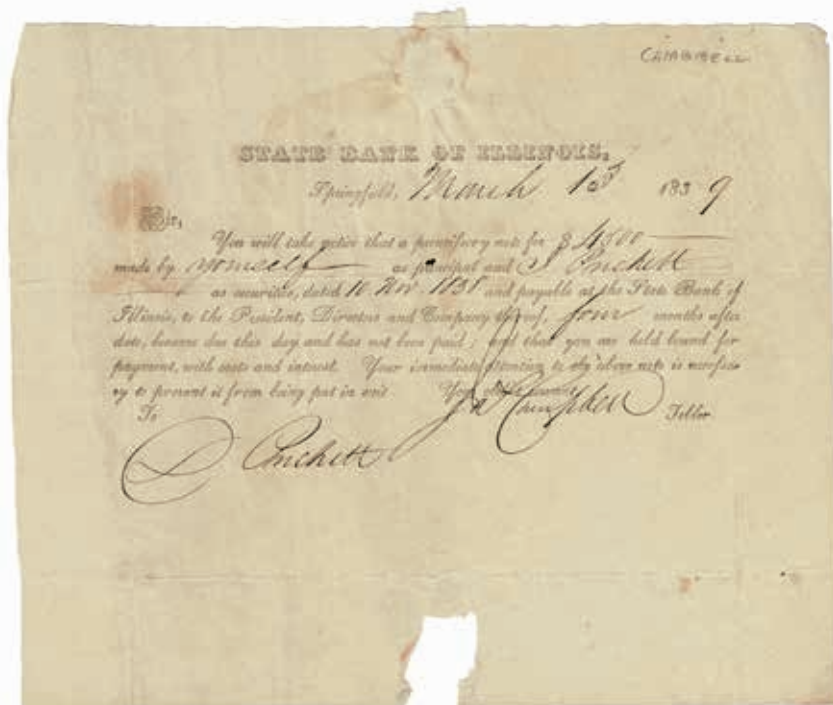 CAMPBELL
STATE BANK OF ILLINOIS,
Springfield, March 13 1839
Sir,
You will take notice that a promissory note for $ 4500
made by yourself as principal and Prickett
as securities, dated 10 Nov 1838 and payable at the State Bank of
Illinois, to the President, Directors and Company thereof, four months after
date, became due this day and has not been paid; and that you are held bound for
payment, with costs and interest. Your immediate attention to the above note is necessa-
ry to prevent it from being put in suit. Your
To Campbell Teller
D Prickett